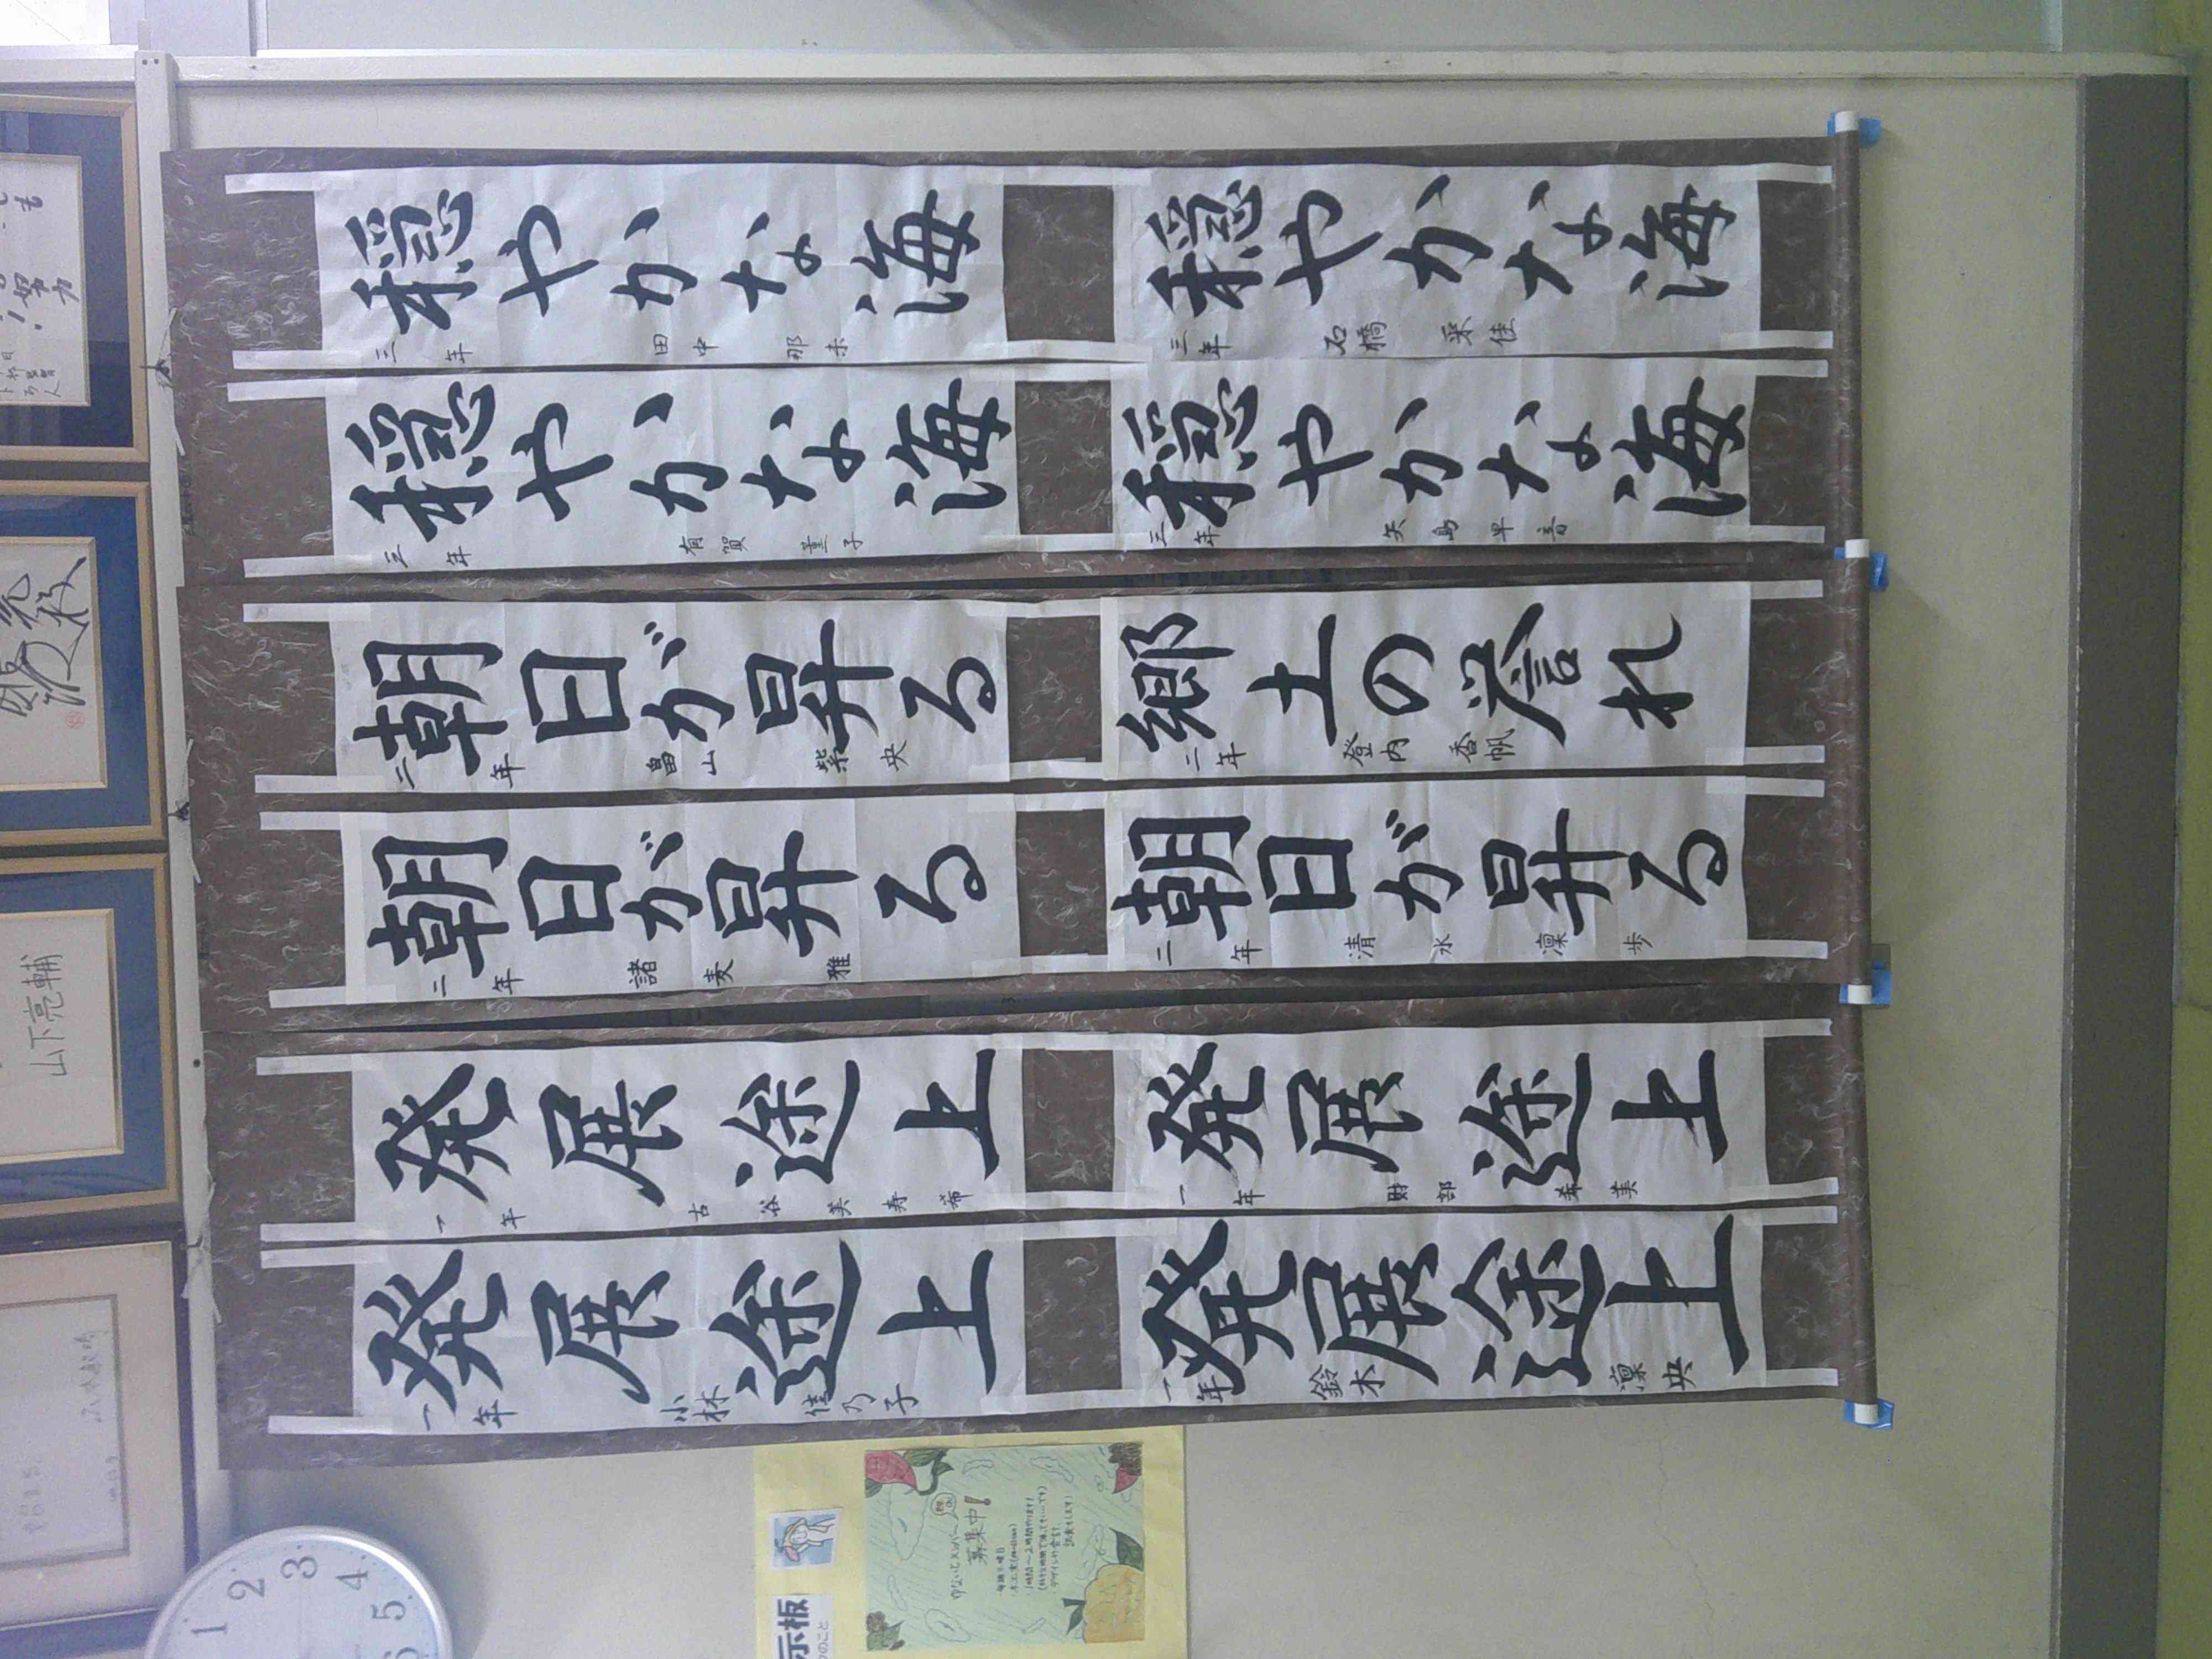 穏やかな海
三年 田中那未
穏やかな海
三年 有賀菫子
朝日が昇る
二年 畠山紫央
朝日が昇る
二年 諸麦雅
発展途上
一年 古谷美寿希
発展途上
一年 小林佳乃子
穏やかな海
三年 石橋采佳
穏やかな海
三年 矢島早音
郷土の誉れ
二年 登内香帆
朝日が昇る
二年 清水凜歩
発展途上
一年 財部希美
発展途上
一年 鈴木凜央
山下亮輔
努力
1
2
3
4
5
示板
のこと
募集中!